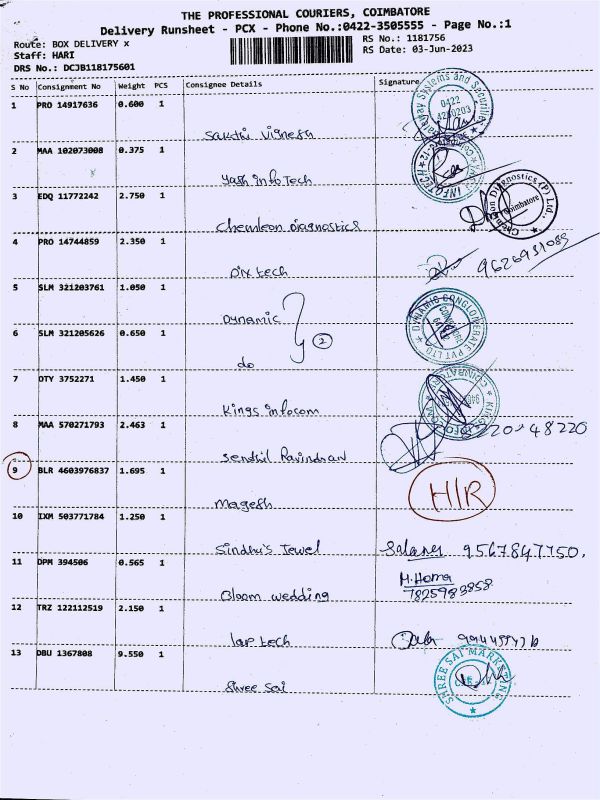 THE PROFESSIONAL COURIERS, COIMBATORE
Delivery Runsheet - PCX - Phone No.:0422-3505555 - Page No.:1
Route: BOX DELIVERY x
RS No.: 1181756
Staff: HARI
RS Date: 03-Jun-2023
DRS No.: DCJB118175601
S No Consignment No Weight PCS Consignee Details Signature
1 PRO 14917636 0.600 1
Sakthi Vignesh
0422
2 MAA 102073008 0.375 1
Yash infoTech
3 EDQ 11772242 2.750 1
Chemleon diagnostics
Diagnostics (P) Ltd.,
Coimbatore
4 PRO 14744859 2.350 1
Dix tech
5 SLM 321203761 1.050 1
Dynamic
DYNAMIC CONGLOMERATE PVT LTD
6 SLM 321205626 0.650 1
do
2
7 OTY 3752271 1.450 1
Kings infocom
8 MAA 570271793 2.463 1
Sendhil Ravindran
9 BLR 4603976837 1.695 1
Magesh
H/R
10 IXM 503771784 1.250 1
Sindhu's Jewel 9567847750.
11 DPM 394506 0.565 1
Bloom wedding
M.Hema
7825983858
12 TRZ 122112519 2.150 1
lap tech
13 DBU 1367808 9.550 1
Shree Sai
SHREE SAI MARKETING